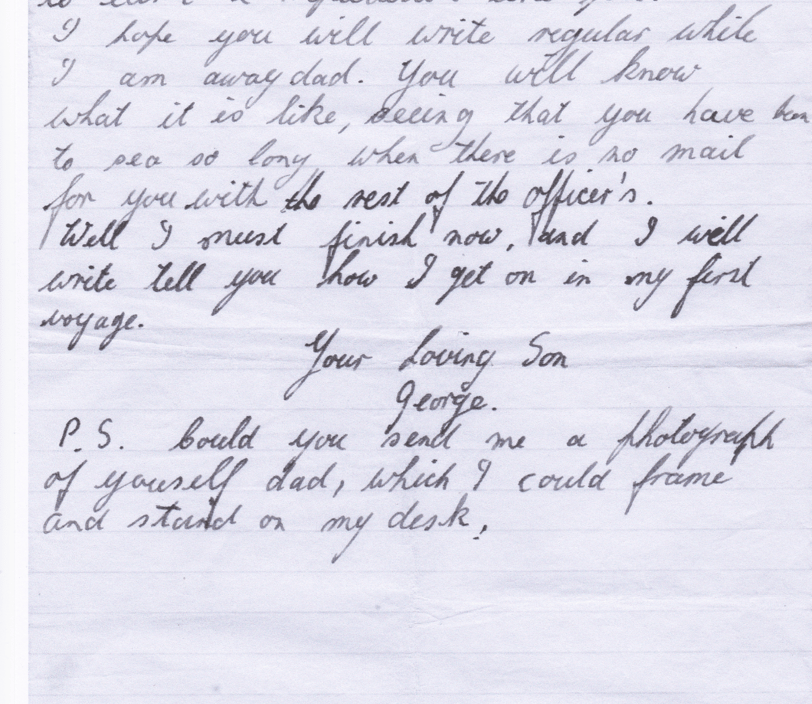 I hope you will write regular while
I am away dad. You will know
what it is like, seeing that you have been
to sea so long when there is no mail
for you with the rest of the officer's.
Well I must finish now, and I will
write tell you how I get on in my first
voyage.
Your Loving Son
George.
P.S. Could you send me a photograph
of youself dad, which I could frame
and stand on my desk,